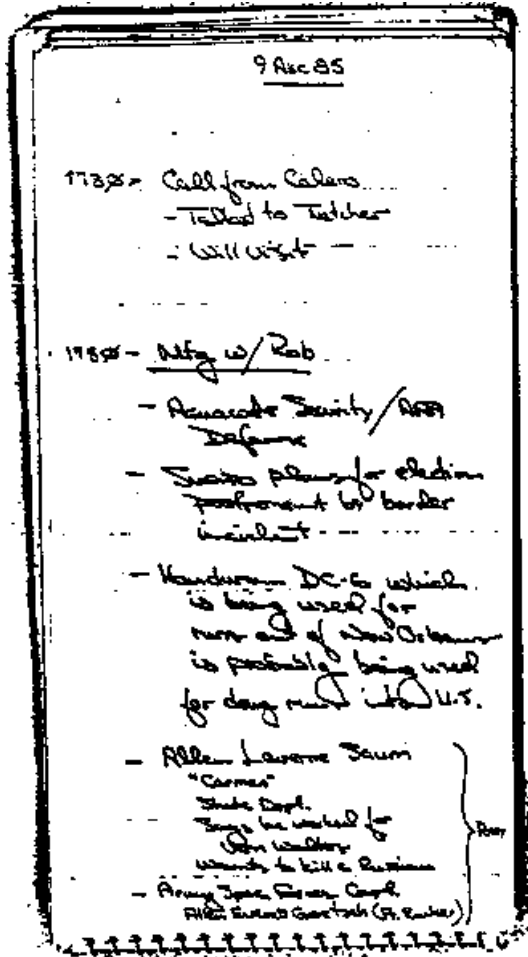 9 Aug 85
1730 - Call from Calero
- Talked to
- Will visit
1950 - Mtg w/ Rob
- Aguacate Security /
Defense
- plans for election
postponement by border
incident
- Honduran DC-6 which
is being used for
runs out of New Orleans
is probably being used
for drug runs into U.S.
- Allen Laverne Saum
"Carmen"
State Dept.
Says he worked for
John
Wants to kill a Russian
- Army Spec. Forces Capt.
Allen